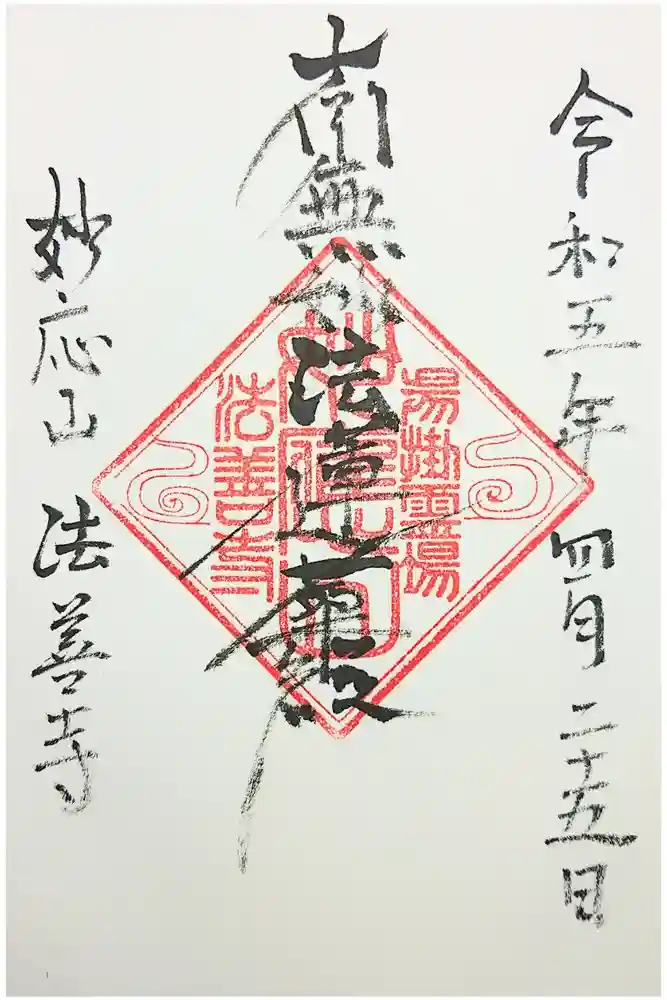 令和五年 四月二十五日
南無妙法蓮華経
湯掛霊場
法善寺
妙応山 法善寺